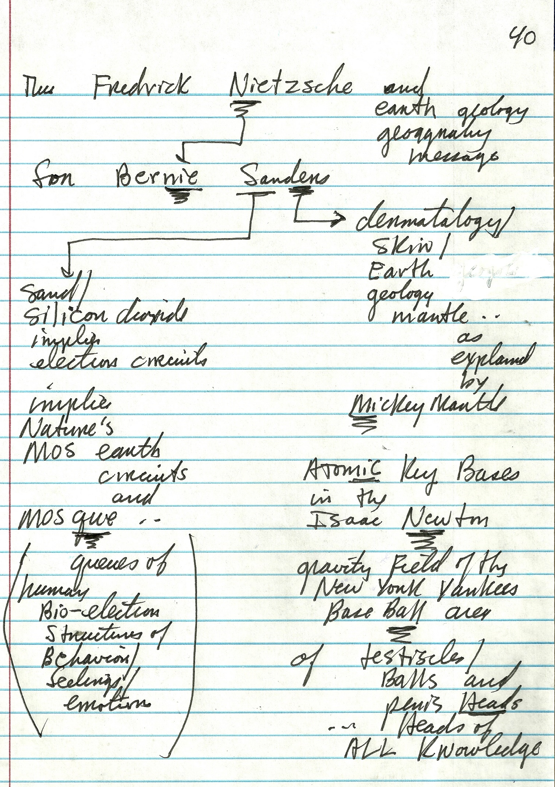 40
The Fredrick Nietzsche and
earth geology
geography
message
for Bernie Sanders
dermatology/
Skin/
Earth
geology
mantle ..
as
explained
by
Mickey Mantle
Sand/
Silicon dioxide
implies
electron circuits
implies
Nature's
MOS earth
circuits
and
MOS que ..
(queues of
human
Bio-electron
Structures of
Behavior/
feelings/
emotions)
Atomic Key Bases
in the
Isaac Newton
gravity Field of the
New York Yankees
Base Ball area
of testicles/
Balls and
penis Heads
... Heads of
ALL Knowledge